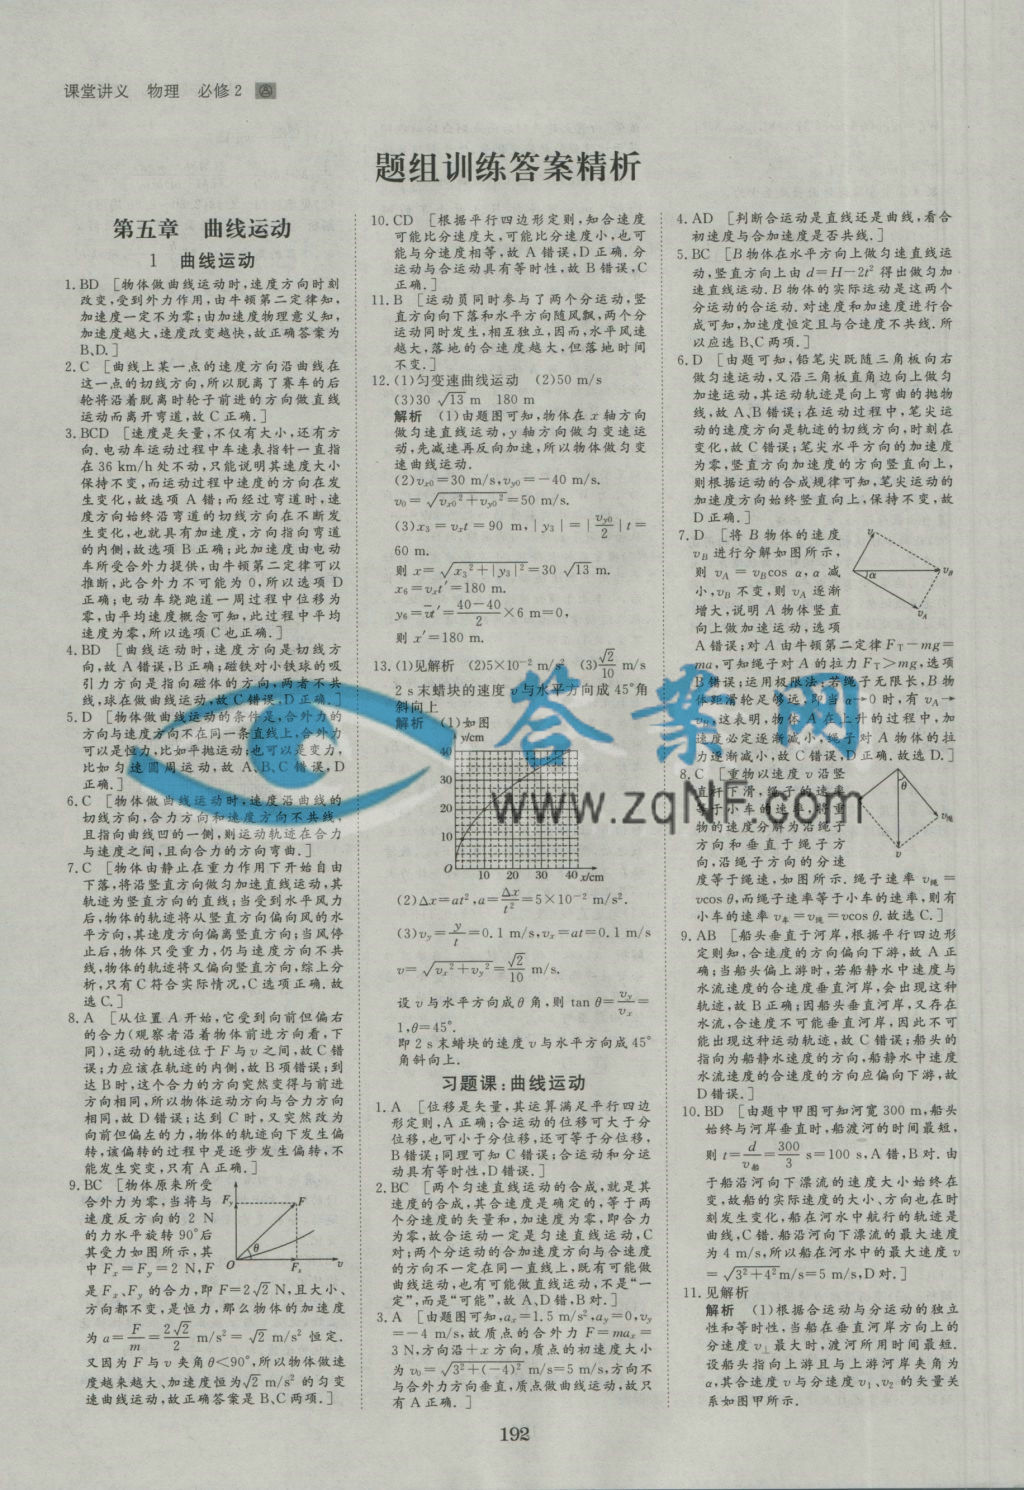 课堂讲义 物理 必修2
题组训练答案精析
第五章 曲线运动
1 曲线运动
1.BD [物体做曲线运动时,速度方向时刻
改变,受到外力作用,由牛顿第二定律知,
加速度一定不为零;由加速度物理意义知,
加速度越大,速度改变越快,故正确答案为
B、D.]
2.C [曲线上某一点的速度方向沿曲线在
这一点的切线方向,所以脱离了赛车的后
轮将沿着脱离时轮子前进的方向做直线
运动而离开弯道,故C正确.]
3.BCD [速度是矢量,不仅有大小,还有方
向.电动车运动过程中车速表指针一直指
在36 km/h处不动,只能说明其速度大小
保持不变,而运动过程中速度的方向在发
生变化,故选项A错;而经过弯道时,速
度方向始终沿弯道的切线方向在不断发
生变化,也就具有加速度,方向指向弯道
的内侧,故选项B正确;此加速度由电动
车所受合外力提供,由牛顿第二定律可以
推断,此合外力不可能为0,所以选项D
正确;电动车绕跑道一周过程中位移为
零,由平均速度概念可知,此过程中平均
速度为零,所以选项C也正确.]
4.BD [曲线运动时,速度方向是切线方
向,故A错误,B正确;磁铁对小铁球的吸
引力方向是指向磁体的方向,两者不共
线,球在做曲线运动,故C错误,D正确.]
5.D [物体做曲线运动的条件是,合外力的
方向与速度方向不在同一条直线上,合外力
可以是恒力,比如平抛运动;也可以是变力,
比如匀速圆周运动,故A、B、C错误,D
正确.]
6.C [物体做曲线运动时,速度沿曲线的
切线方向,合力方向和速度方向不共线,
且指向曲线凹的一侧,则运动轨迹在合力
与速度之间,且向合力的方向弯曲.]
7.C [物体由静止在重力作用下开始自由
下落,将沿竖直方向做匀加速直线运动,其
轨迹为竖直方向的直线;当受到水平风力
后,物体的轨迹将从竖直方向偏向风的水
平方向,其速度方向偏离竖直方向;当风停
止后,物体只受重力,仍与速度方向不共
线,物体的轨迹将又偏向竖直方向,综上分
析,只有C符合实际情况,C选项正确.故
选C.]
8.A [从位置A开始,它受到向前但偏右
的合力(观察者沿着物体前进方向看,下
同),运动的轨迹位于F与v之间,故C错
误;力应该在轨迹的内侧,故B项错误;到
达B时,这个合力的方向突然变得与前进
方向相同,所以物体运动方向与合力方向
相同,故D错误;达到C时,又突然改为
向前但偏左的力,物体的轨迹向下发生偏
转,该偏转的过程中是逐步发生偏转,不
能发生突变,只有A正确.]
9.BC [物体原来所受
合外力为零,当将与
速度反方向的2 N
的力水平旋转90°后
其受力如图所示,其
中Fₓ=Fᵧ=2 N,F
是Fₓ、Fᵧ的合力,即F=2√2 N,且大小、
方向都不变,是恒力,那么物体的加速度
为a=F/m=2√2/2 m/s²=√2 m/s² 恒定.
又因为F与v夹角θ<90°,所以物体做速
度越来越大、加速度恒为√2 m/s²的匀变
速曲线运动,故正确答案是B、C两项.]
Fᵧ F θ O Fₓ v
10.CD [根据平行四边形定则,知合速度
可能比分速度大,可能比分速度小,也可
能与分速度相等,故A错误,D正确.分
运动与合运动具有等时性,故B错误,C
正确.]
11.B [运动员同时参与了两个分运动,竖
直方向向下落和水平方向随风飘,两个分
运动同时发生,相互独立,因而,水平风速
越大,落地的合速度越大,但落地时间
不变.]
12.(1)匀变速曲线运动 (2)50 m/s
(3)30√13 m 180 m
解析 (1)由题图可知,物体在x轴方向
做匀速直线运动,y轴方向做匀变速运
动,先减速再反向加速,所以物体做匀变
速曲线运动.
(2)vₓ₀=30 m/s,vᵧ₀=-40 m/s.
v₀=√(vₓ₀²+vᵧ₀²)=50 m/s.
(3)x₃=vₓt=90 m,|y₃|=|vᵧ₀/2|t=
60 m.
则x=√(x₃²+|y₃|²)=30√13 m.
x₆=vₓt′=180 m.
y₆=v̄t′=(40-40)/2×6 m=0,
则x′=180 m.
13.(1)见解析 (2)5×10⁻² m/s² (3)√2/10 m/s
2 s末蜡块的速度v与水平方向成45°角
斜向上
解析 (1)如图
y/cm
40
30
20
10
O 10 20 30 40 x/cm
(2)Δx=at²,a=Δx/t²=5×10⁻² m/s².
(3)vᵧ=y/t=0.1 m/s,vₓ=at=0.1 m/s
v=√(vₓ²+vᵧ²)=√2/10 m/s.
设v与水平方向成θ角,则tan θ=vᵧ/vₓ=
1,θ=45°.
即2 s末蜡块的速度v与水平方向成45°
角斜向上.
习题课:曲线运动
1.A [位移是矢量,其运算满足平行四边
形定则,A正确;合运动的位移可大于分
位移,也可小于分位移,还可等于分位移,
B错误;同理可知C错误;合运动和分运
动具有等时性,D错误.]
2.BC [两个匀速直线运动的合成,就是其
速度的合成,其合速度是确定的,等于两
个分速度的矢量和,加速度为零,即合力
为零,故合运动一定是匀速直线运动,C
对;两个分运动的合加速度方向与合速度
的方向不一定在同一直线上,既有可能做
曲线运动,也有可能做直线运动,不是“一
定”,而是“可能”,故A、D错,B对.]
3.A [由题图可知,aₓ=1.5 m/s²,aᵧ=0,vᵧ
=-4 m/s,故质点的合外力F=maₓ=
3 N,方向沿+x方向,质点的初速度大小
为v₀=√(3²+(-4)²) m/s=5 m/s,方向不
与合外力方向垂直,质点做曲线运动,故只
有A正确.]
4.AD [判断合运动是直线还是曲线,看合
初速度与合加速度是否共线.]
5.BC [B物体在水平方向上做匀速直线运
动,竖直方向上由d=H-2t²得出做匀加
速直线运动.B物体的实际运动是这两个
分运动的合运动.对速度和加速度进行合
成可知,加速度恒定且与合速度不共线.所
以应选B、C两项.]
6.D [由题可知,铅笔尖既随三角板向右
做匀速运动,又沿三角板直角边向上做匀
加速运动,其运动轨迹是向上弯曲的抛物
线,故A、B错误;在运动过程中,笔尖运
动的速度方向是轨迹的切线方向,时刻在
变化,故C错误;笔尖水平方向的加速度
为零,竖直方向加速度的方向竖直向上,
则根据运动的合成规律可知,笔尖运动的
加速度方向始终竖直向上,保持不变,故
D正确.]
7.D [将B物体的速度
v_B进行分解如图所示,
则v_A=v_Bcos α,α减
小,v_B不变,则v_A逐渐
增大,说明A物体竖直
向上做加速运动,选项
A错误;对A由牛顿第二定律F_T-mg=
ma,可知绳子对A的拉力F_T>mg,选项
B错误;运用极限法:若绳子无限长,B物
体距滑轮足够远,即当α→0时,有v_A→
v_B,这表明,物体A在上升的过程中,加
速度必定逐渐减小,绳子对A物体的拉
力逐渐减小,故C错误,D正确.故选D.]
α v_B v_A
8.C [重物以速度v沿竖
直杆下滑,绳子的速率
等于小车的速率,将重
物的速度分解为沿绳子
方向和垂直于绳子方
向,沿绳子方向的分速
度等于绳速,如图所示.绳子速率v绳=
vcos θ,而绳子速率等于小车的速率,则有
小车的速率v车=v绳=vcos θ.故选C.]
θ v绳 v
9.AB [船头垂直于河岸,根据平行四边形
定则知,合速度的方向偏向下游,故A正
确;当船头偏上游时,若船静水中速度与
水流速度的合速度垂直河岸,会出现这种
轨迹,故B正确;因船头垂直河岸,又存在
水流,合速度不可能垂直河岸,因此不可
能出现这种运动轨迹,故C错误;船头的
指向为船静水速度的方向,船静水中速度
水流速度的合速度的方向应偏向下游,故
D错误.]
10.BD [由题中甲图可知河宽300 m,船头
始终与河岸垂直时,船渡河的时间最短,
则t=d/v船=300/3 s=100 s,A错,B对.由
于船沿河向下漂流的速度大小始终在
变,故船的实际速度的大小、方向也在时
刻发生变化,船在河水中航行的轨迹是
曲线,C错.船沿河向下漂流的最大速度
为4 m/s,所以船在河水中的最大速度v
=√(3²+4²) m/s=5 m/s,D对.]
11.见解析
解析 (1)根据合运动与分运动的独立
性和等时性,当船在垂直河岸方向上的
分速度v⊥最大时,渡河所用时间最短.
设船头指向上游且与上游河岸夹角为
α,其合速度v与分速度v₁、v₂的矢量关
系如图甲所示.
答案网
www.zqNF.com
192